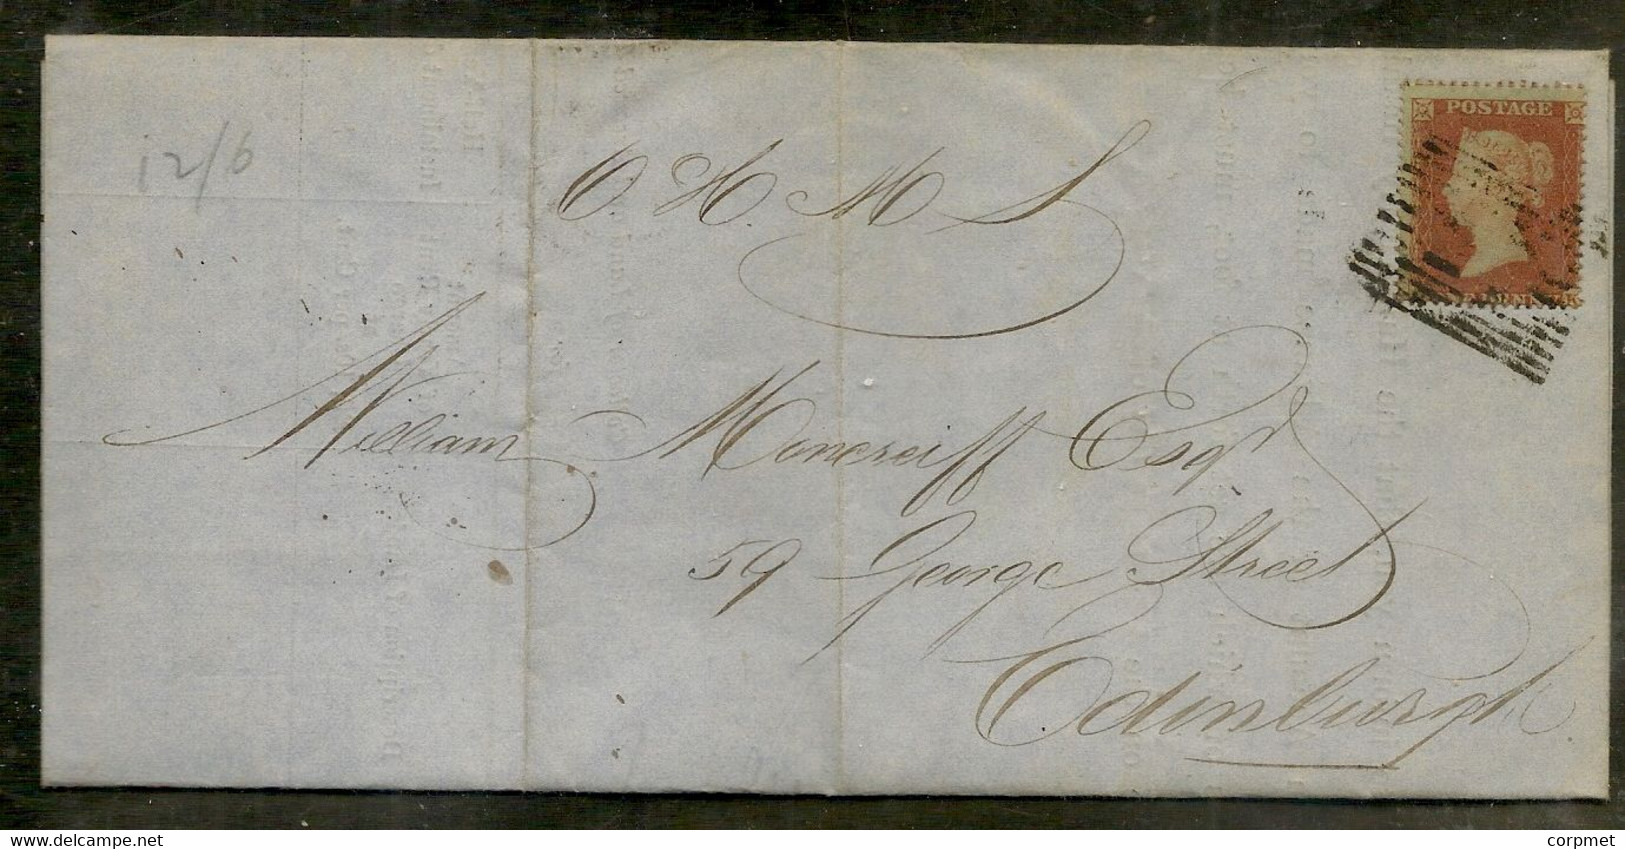 12/6
O. H. M. S
POSTAGE
William Moncreiff Esqr
59 George Street
Edinburgh
corpmet